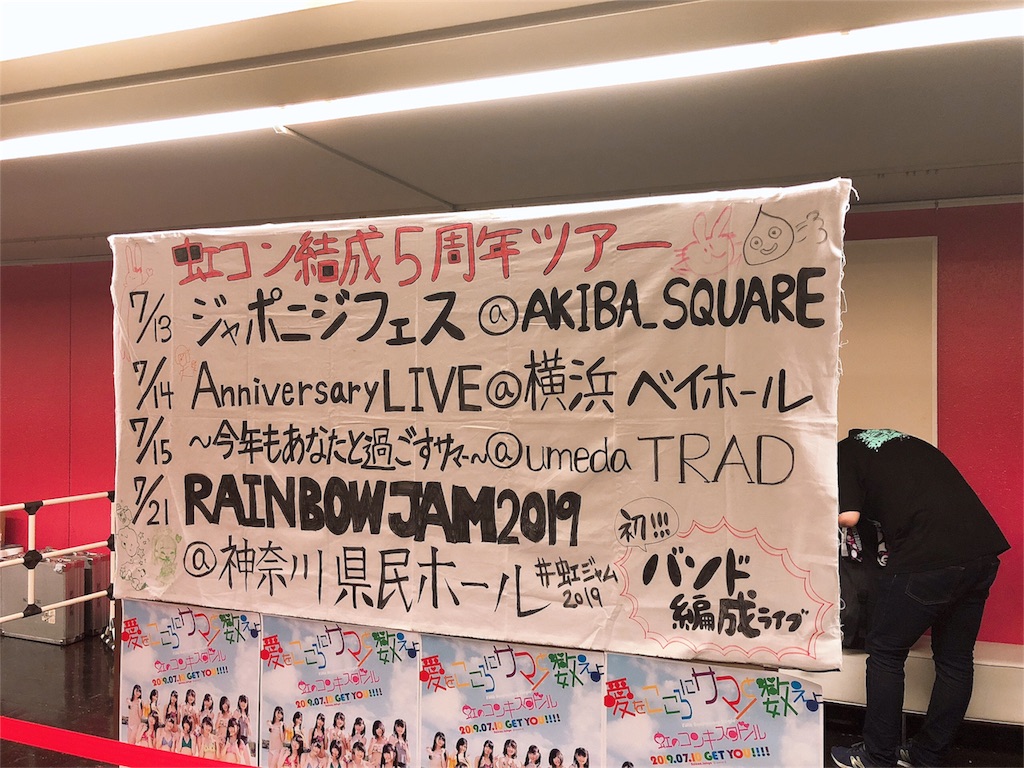 虹コン結成5周年ツアー
7/13 ジャポニジフェス @AKIBA_SQUARE
7/14 AnniversaryLIVE@横浜 ベイホール
7/15 〜今年もあなたと過ごすサマー〜@umeda TRAD
7/21 RAINBOW JAM2019
@神奈川県民ホール
#虹ジャム
2019
初!!!
バンド
編成ライブ
愛をこころにサマーと数えよ
虹のコンキスタドール
2019.07.10 GET YOU!!!!
愛をこころにサマーと数えよ
虹のコンキスタドール
2019.07.10 GET YOU!!!!
愛をこころにサマーと数えよ
虹のコンキスタドール
2019.07.10 GET YOU!!!!
愛をこころにサマーと数えよ
虹のコンキスタドール
2019.07.10 GET YOU!!!!